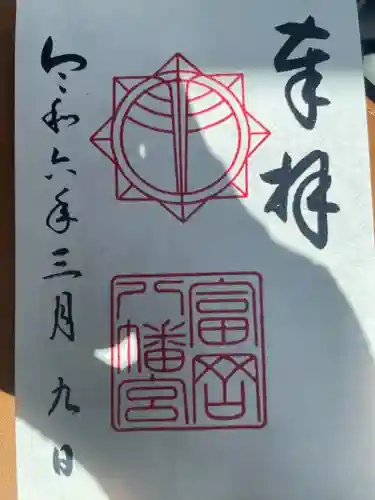 奉拝
富岡
八幡宮
令和六年三月九日